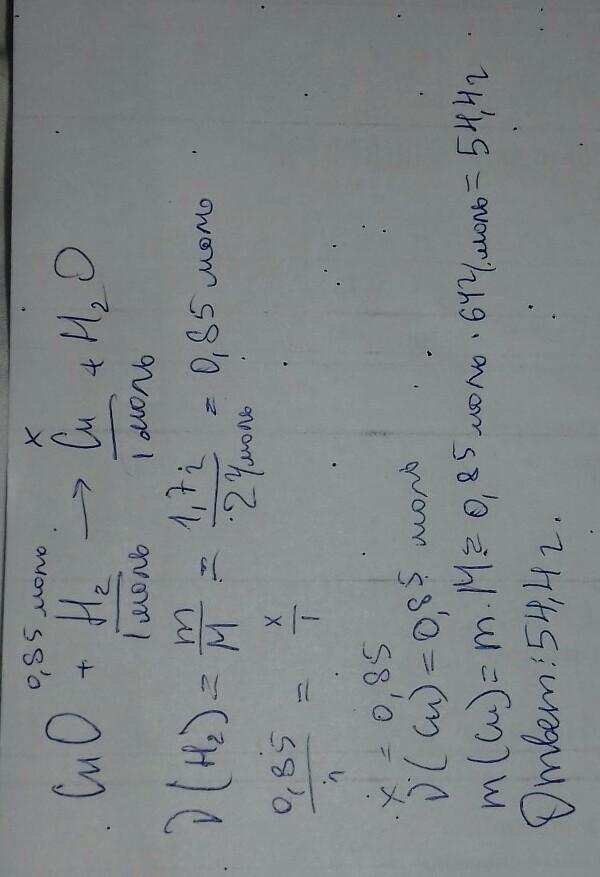 0,85 моль x
CuO + H₂ → Cu + H₂O
1 моль 1 моль
ν(H₂) = m/M = 1,7г/2г/моль = 0,85 моль
0,85/1 = x/1
x = 0,85
ν(Cu) = 0,85 моль
m(Cu) = m · M = 0,85 моль · 64г/моль = 54,4г
Ответ: 54,4г.